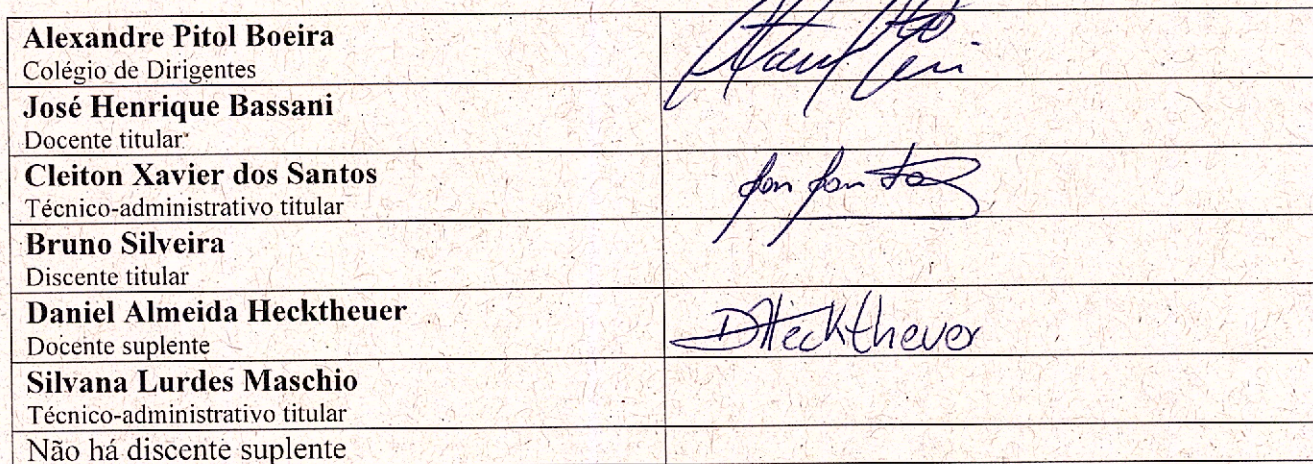 Alexandre Pitol Boeira
Colégio de Dirigentes
José Henrique Bassani
Docente titular
Cleiton Xavier dos Santos
Técnico-administrativo titular
Bruno Silveira
Discente titular
Daniel Almeida Hecktheuer
DHecktheuer
Docente suplente
Silvana Lurdes Maschio
Técnico-administrativo titular
Não há discente suplente